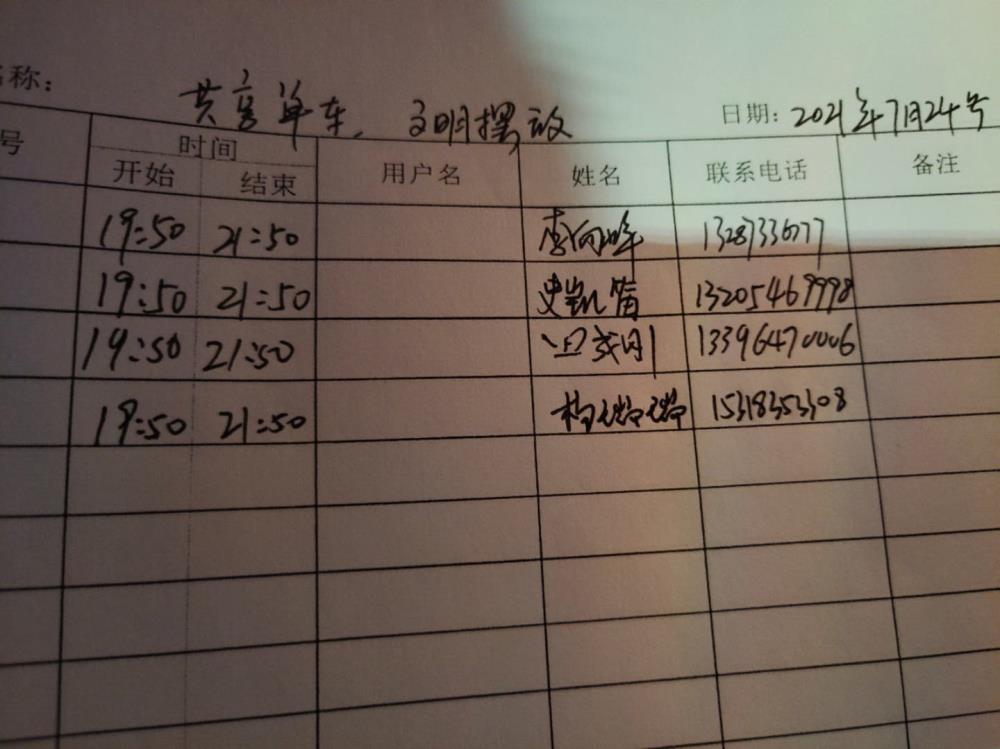 名称： 共享单车，文明摆放 日期：2021年7月24号
号 时间 用户名 姓名 联系电话 备注
开始 结束
19:50 21:50 李向峰
19:50 21:50 史凯笛 13205469998
19:50 21:50 13396470006
19:50 21:50 15318353308